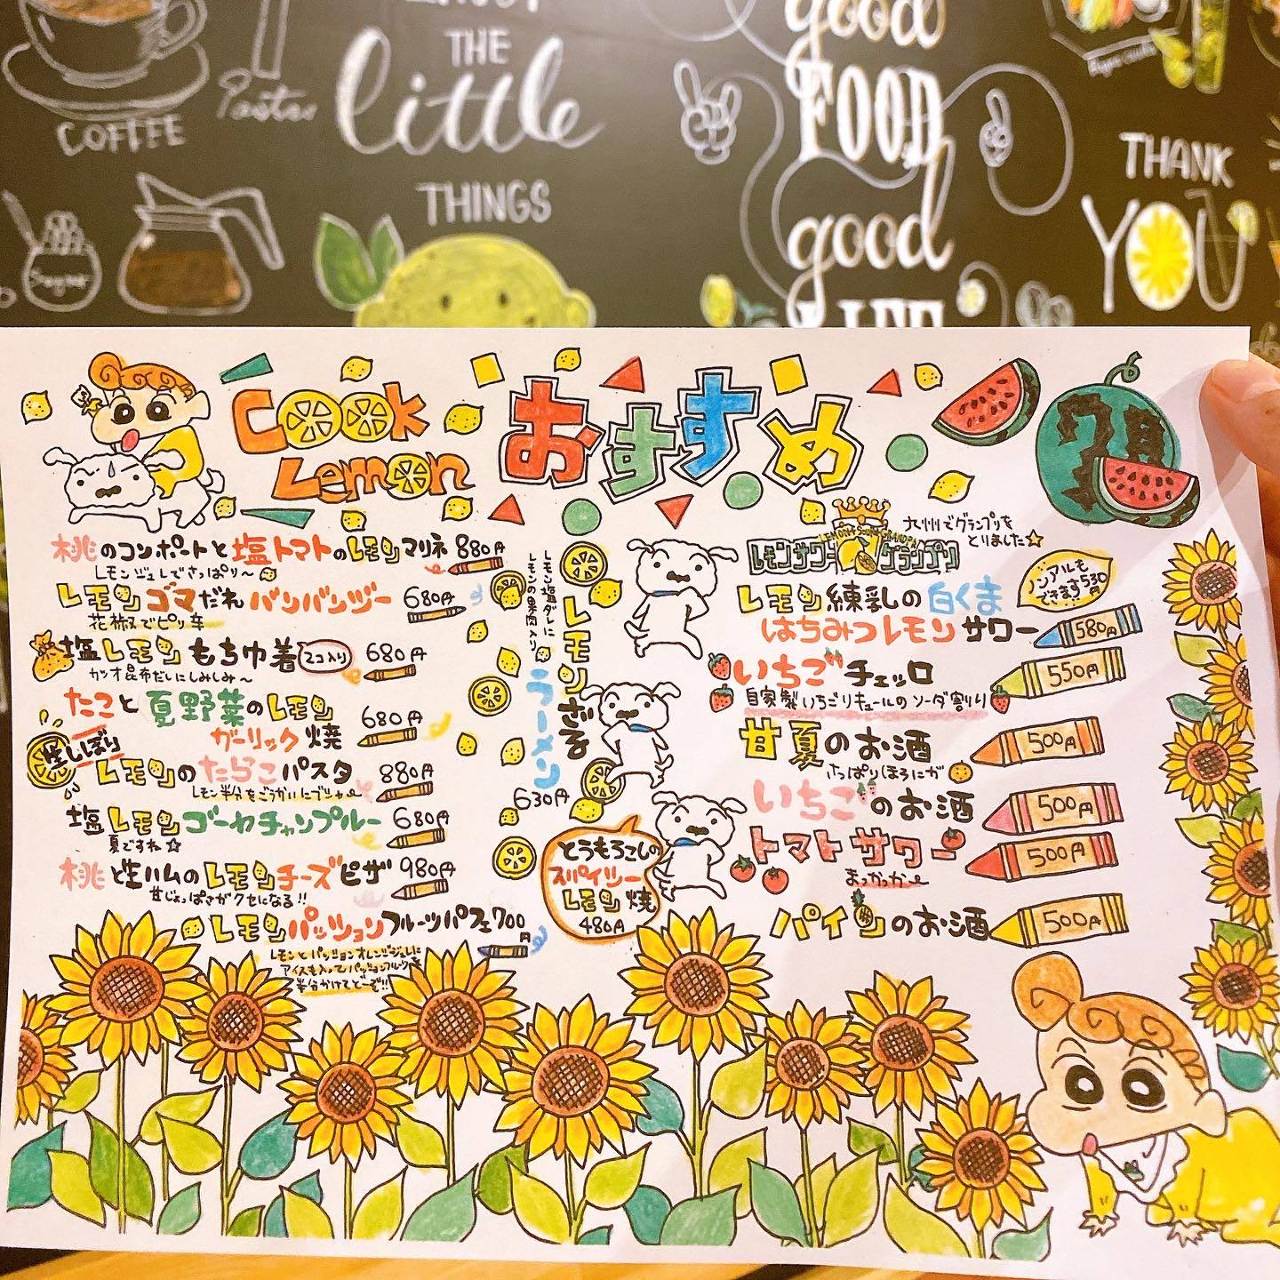 COFFEE
Pasta
THE
little
THINGS
Sugar
good
FOOD
good
LIFE
THANK
YOU
Cook
Lemon
おすすめ
7月
桃のコンポートと塩トマトのレモンマリネ 880円
レモンジュレでさっぱり〜
レモンゴマだれバンバンジー 680円
花椒でピリ辛
塩レモンもち巾着 2コ入り 680円
カツオ昆布だしにしみしみ〜
たこと夏野菜のレモン
ガーリック焼 680円
生しぼり
レモンのたらこパスタ 880円
レモン半分をごうかいにブシャー
塩レモンゴーヤチャンプルー 680円
夏ですね☆
桃と生ハムのレモンチーズピザ 980円
甘じょっぱさがクセになる!!
レモンパッションフルーツパフェ 700円
レモンとパッションオレンジジュレに
アイスも入ってパッションフルーツを
半分かけてどーぞ!!
レモン塩ダレに
レモンの果肉入り
レモンざる
ラーメン
630円
とうもろこしの
スパイシー
レモン焼
480円
LEMON SOUR GRANDPRIX
レモンサワーグランプリ
九州でグランプリを
とりました☆
レモン練乳の白くま
はちみつレモンサワー 580円
ノンアルも
できます530円
いちごチェッロ 550円
自家製いちごリキュールのソーダ割り
甘夏のお酒 500円
さっぱりほろにが
いちごのお酒 500円
トマトサワー 500円
まっかっかー
パインのお酒 500円